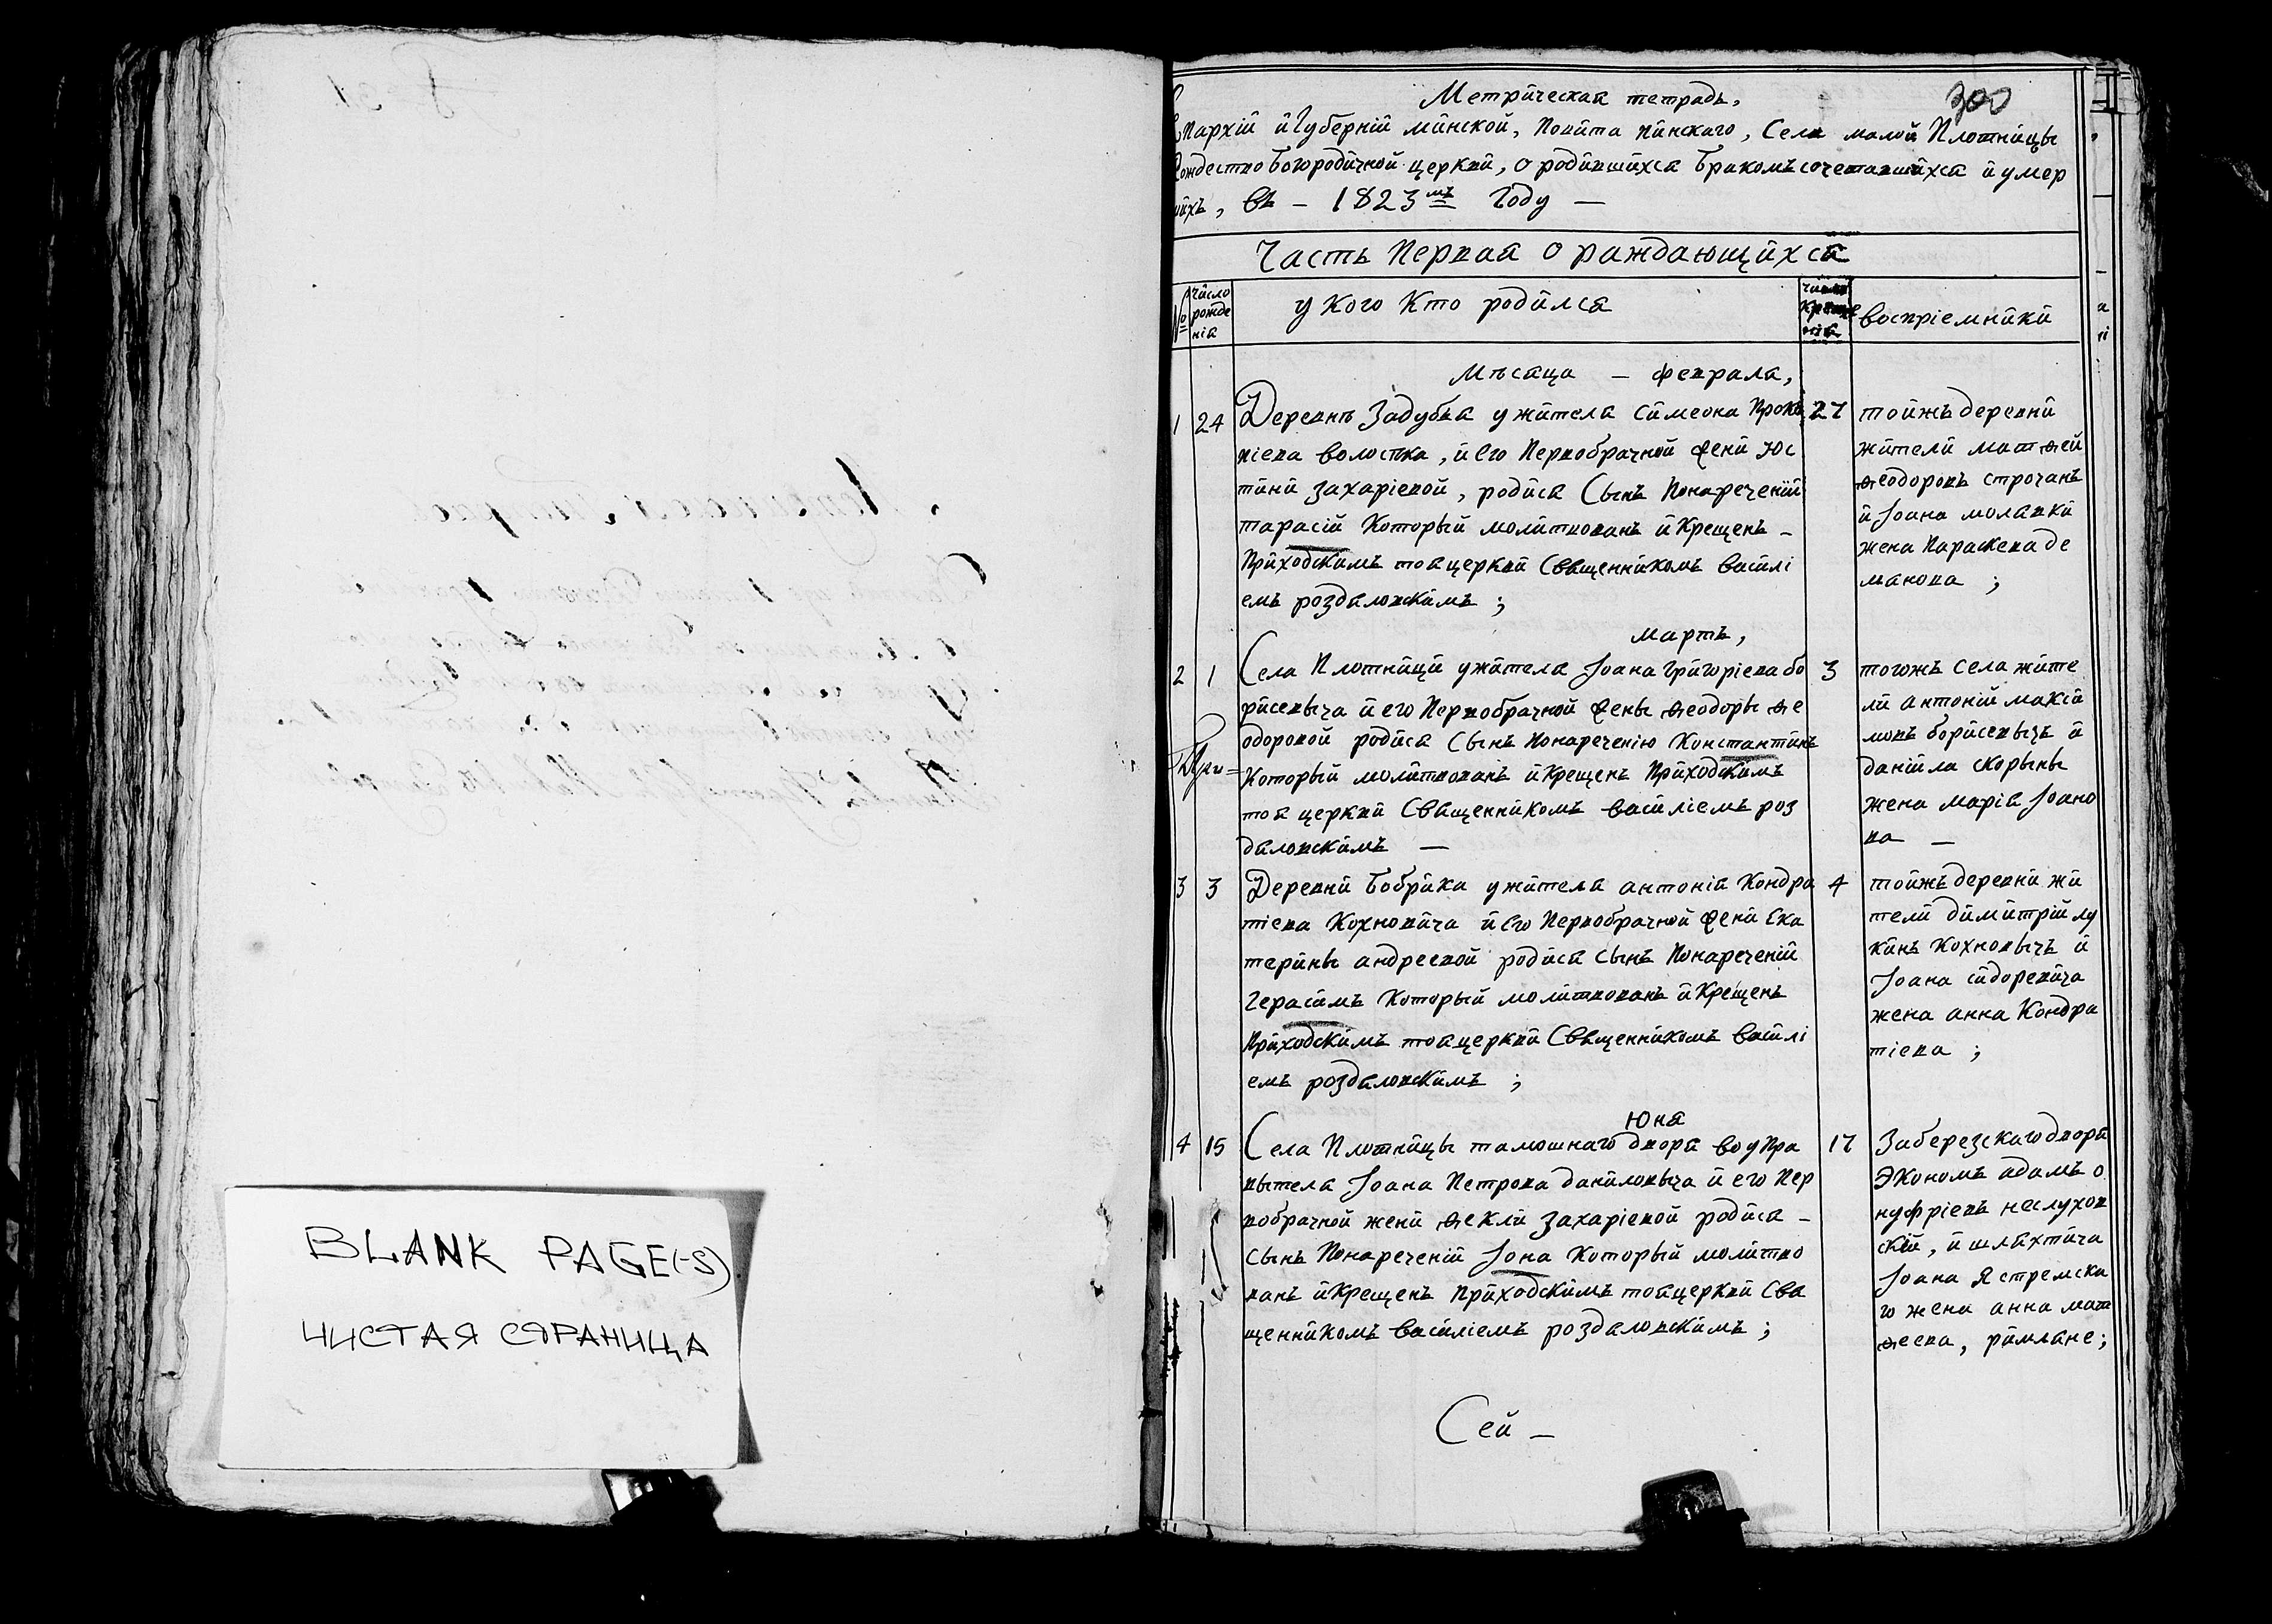 BLANK PAGE(-S)
ЧИСТАЯ СТРАНИЦА
300
Метрическая тетрадь,
Епархіи и Губерніи минской, Повита пинскаго, Села малой Плотницы
Рождество Богородичной церкви, о родившихся бракомъ сочетавшихся и умер
шихъ, въ – 1823мъ Году —
Часть Первая о раждающихся
№
число рожде нія
у кого кто родился
число креще нія
воспріемники
Мѣсяца – февраля,
1 24
Деревнѣ Задубья у жителя Симеона Проко
піева волостка, и его Первобрачной жени Юс
тини захаріевой, родися Сынъ Понареченіи
тарасій Который молитвованъ и Крещенъ –
Приходскимъ тоя церкви Священникомъ Васілі
емъ роздяловскимъ ;
27
тойжъ деревни
жители матѳей
ѳеодоровъ строчанъ
и Іоана молявки
жена Параскева де
мянова ;
мартъ,
2 1
Села Плотници у жителя Іоана Григоріева бо
рисевыча и его Первобрачной жены ѳеодоры ѳе
одоровой родися Сынъ Понареченію Константинъ
Который молитвованъ и Крещенъ Приходскимъ
тоя церкви Священникомъ Васіліемъ роз
дяловскимъ —
3
тогожъ села жите
ли антоній максі
мовъ борисевычъ и
даніила скорыны
жена марія Іоано
ва —
3 3
Деревни Бобрика у жителя антонія Кондра
тіева Кохновича и его Первобрачной жени Ека
терины андреевой родися сынъ Понареченій
Герасимъ Который молитвованъ и Крещенъ
Приходскимъ тоя церкви Священникомъ Васілі
емъ роздяловскимъ ;
4
тойжъ деревни жи
тели димитрій лу
кинъ Кохновычъ и
Іоана сидоревича
жена анна Кондра
тіева ;
Юня
4 15
Села Плотницы тамошнаго двора во упра
вытеля Іоана Петрова даниловыча и его Пер
вобрачной жени ѳекли захаріевой родися –
сынъ Понареченій Іона Который молитво
ванъ и Крещенъ Приходскимъ тоя церкви Свя
щенникомъ Васіліемъ роздяловскимъ ;
17
Заберезскаго двора
Экономъ адамъ о
нуфріевъ неслухов
скій, и шляхтича
Іоана Ястремска
го жена анна мат
ѳеева, римляне;
Сей –